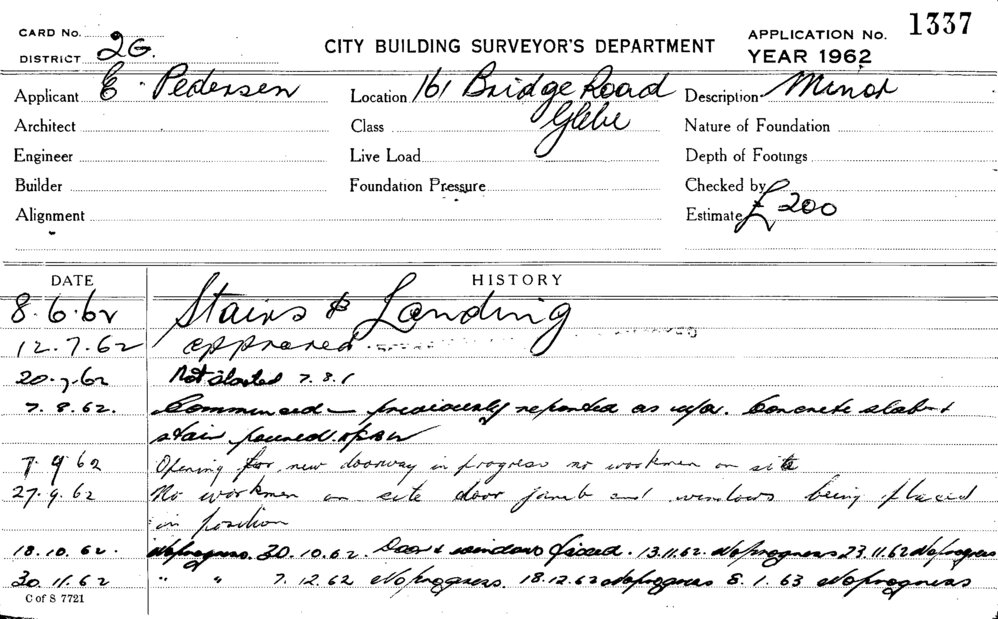 CARD No.
DISTRICT 2G.
CITY BUILDING SURVEYOR'S DEPARTMENT
APPLICATION No. 1337
YEAR 1962
Applicant E. Pedersen
Location 161 Bridge Road
Glebe
Description Minor
Architect
Class
Nature of Foundation
Engineer
Live Load
Depth of Footings
Builder
Foundation Pressure
Checked by
Alignment
Estimate £200
DATE HISTORY
8.6.62 Stairs & Landing
12.7.62 approved
20.7.62 Not started 7.8.
7.8.62. Commenced – previously reported as Concrete slab &
stair poured
7.9.62 Opening for new doorway in progress no workmen on site
27.9.62 No workmen on site door jamb and windows being placed
in position
18.10.62. No progress. 30.10.62. Door & windows fixed. 13.11.62. No progress 23.11.62 No progress
30.11.62 " " 7.12.62 No progress. 18.12.62 No progress 8.1.63 No progress
C of S 7721